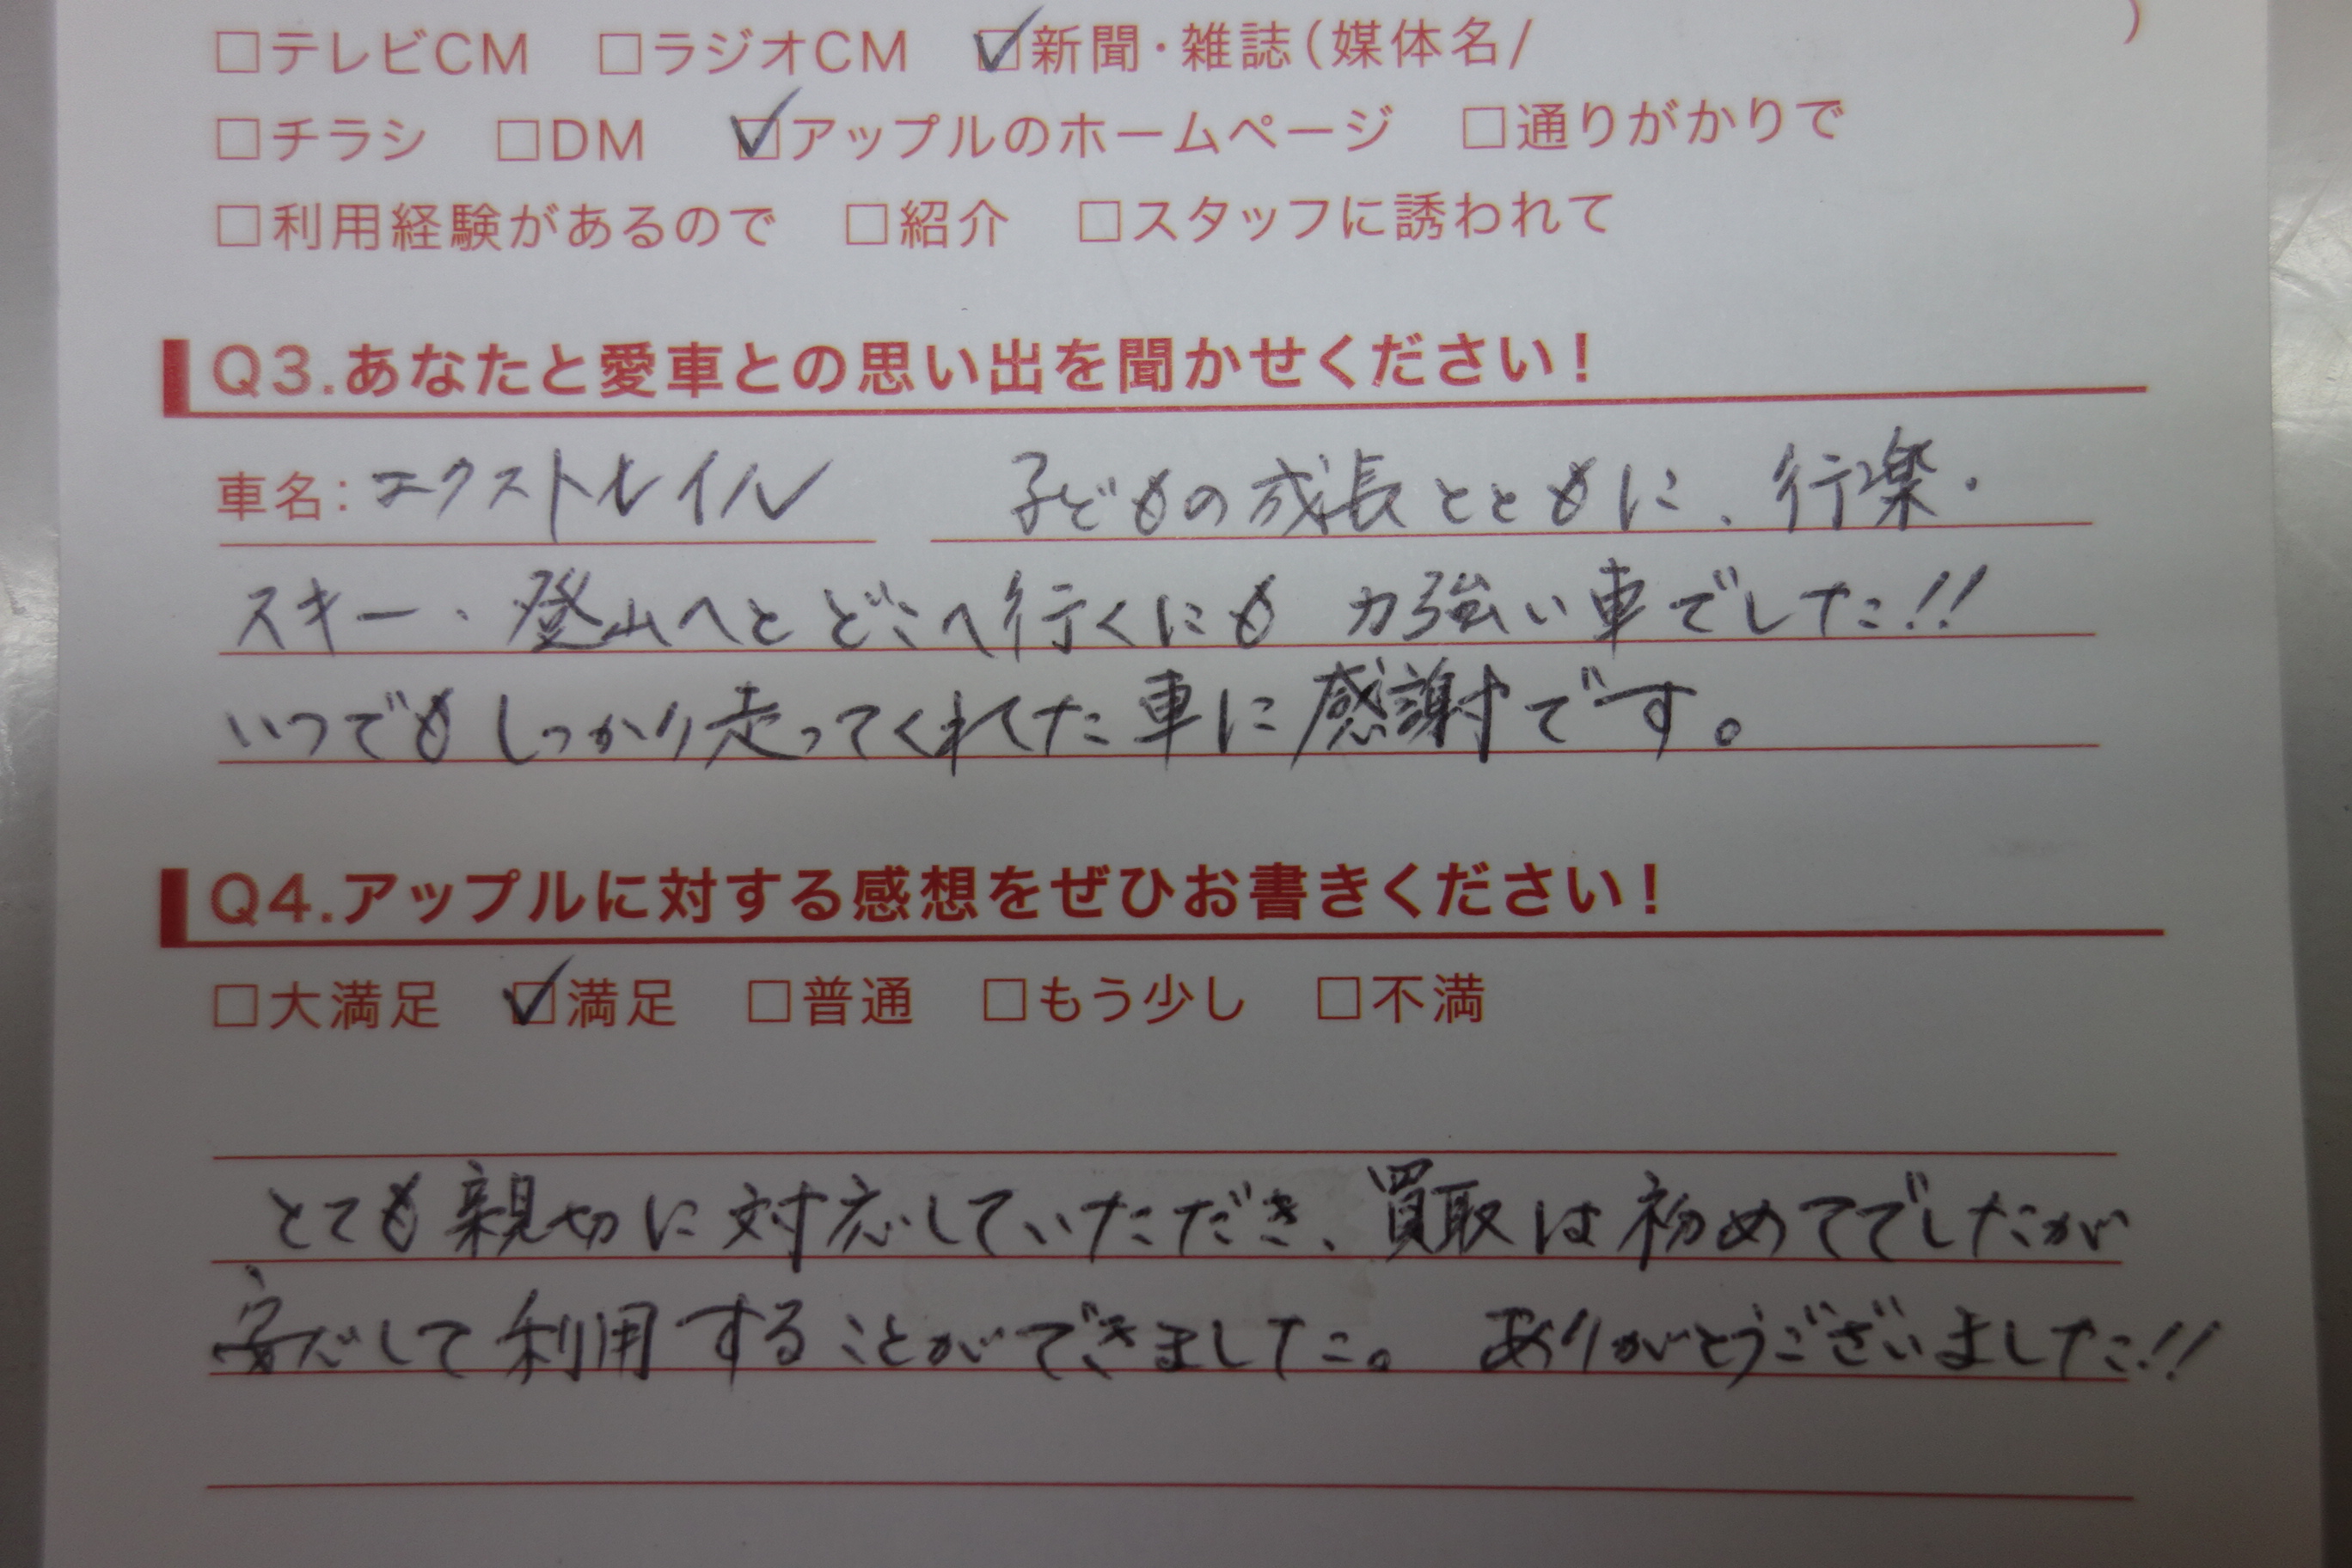 □テレビCM □ラジオCM ☑新聞・雑誌(媒体名/ )
□チラシ □DM ☑アップルのホームページ □通りがかりで
□利用経験があるので □紹介 □スタッフに誘われて
Q3.あなたと愛車との思い出を聞かせください!
車名:エクストレイル 子どもの成長とともに、行楽・
スキー・登山へと どこへ行くにも 力強い車でした!!
いつでもしっかり走ってくれてた車に感謝です。
Q4.アップルに対する感想をぜひお書きください!
□大満足 ☑満足 □普通 □もう少し □不満
とても親切に対応していただき、買取は初めてでしたが
安心して利用することができました。 ありがとうございました!!